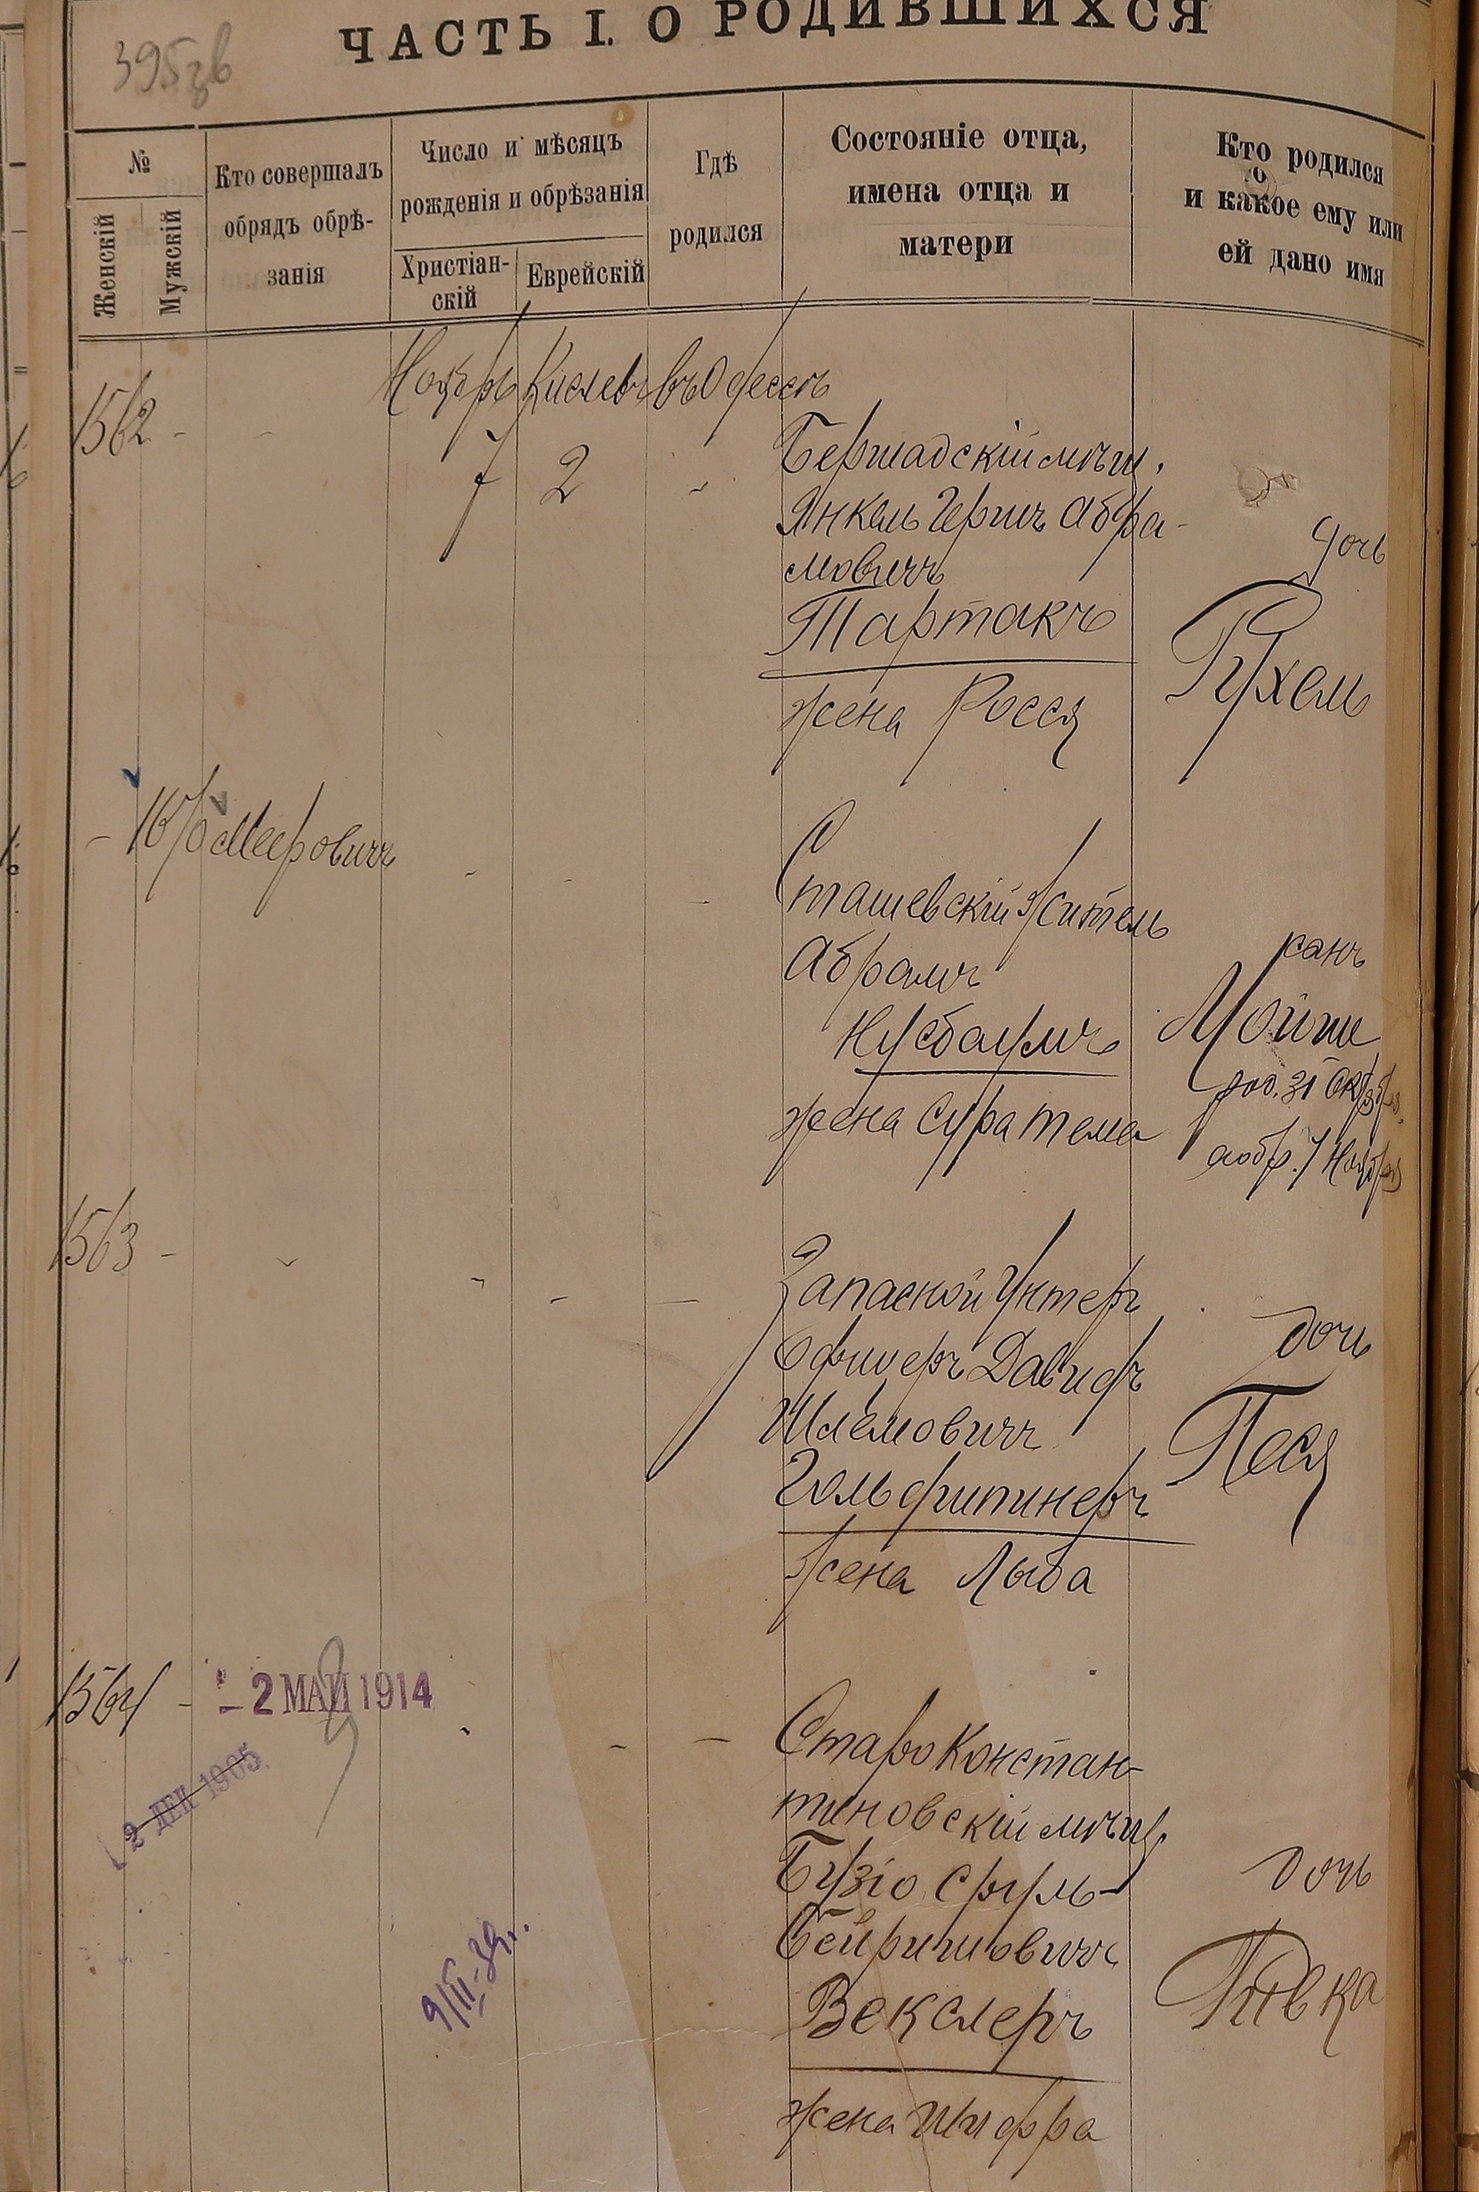 395зв
ЧАСТЬ I. О РОДИВШИХСЯ
№
Женскій
Мужскій
Кто совершалъ
обрядъ обрѣ-
занія
Число и мѣсяцъ
рожденія и обрѣзанія
Христіан-
скій
Еврейскій
Гдѣ
родился
Состояніе отца,
имена отца и
матери
Кто родился
и какое ему или
ей дано имя
Ноябрь Кислевъ въ Одессѣ
1562 - - 7 2 -
Бершадскій мѣщ.
Янкель Гершъ Абра-
мовичъ
Тартакъ
жена Росся
дочь
Рухель
- Мееровичъ - - -
Сташевскій житель
Абрамъ
Нусбаумъ
жена Сура Тема
сынъ
Мойше
род. 31 Октября
а обр. 7 Ноября
1563 - - - - -
Запасной Унтеръ
Офицеръ Давидъ
Шлемовичъ
Гольдшпинеръ
жена Лыба
дочь
Песя
1564 -
- 2 МАЙ 1914
2 ДЕК 1905
9/III-39г.
Старо Констан-
тиновскій мѣщ.
Бузіо Сруль
Бейришовичъ
Векслеръ
жена Шифра
дочь
Ривка